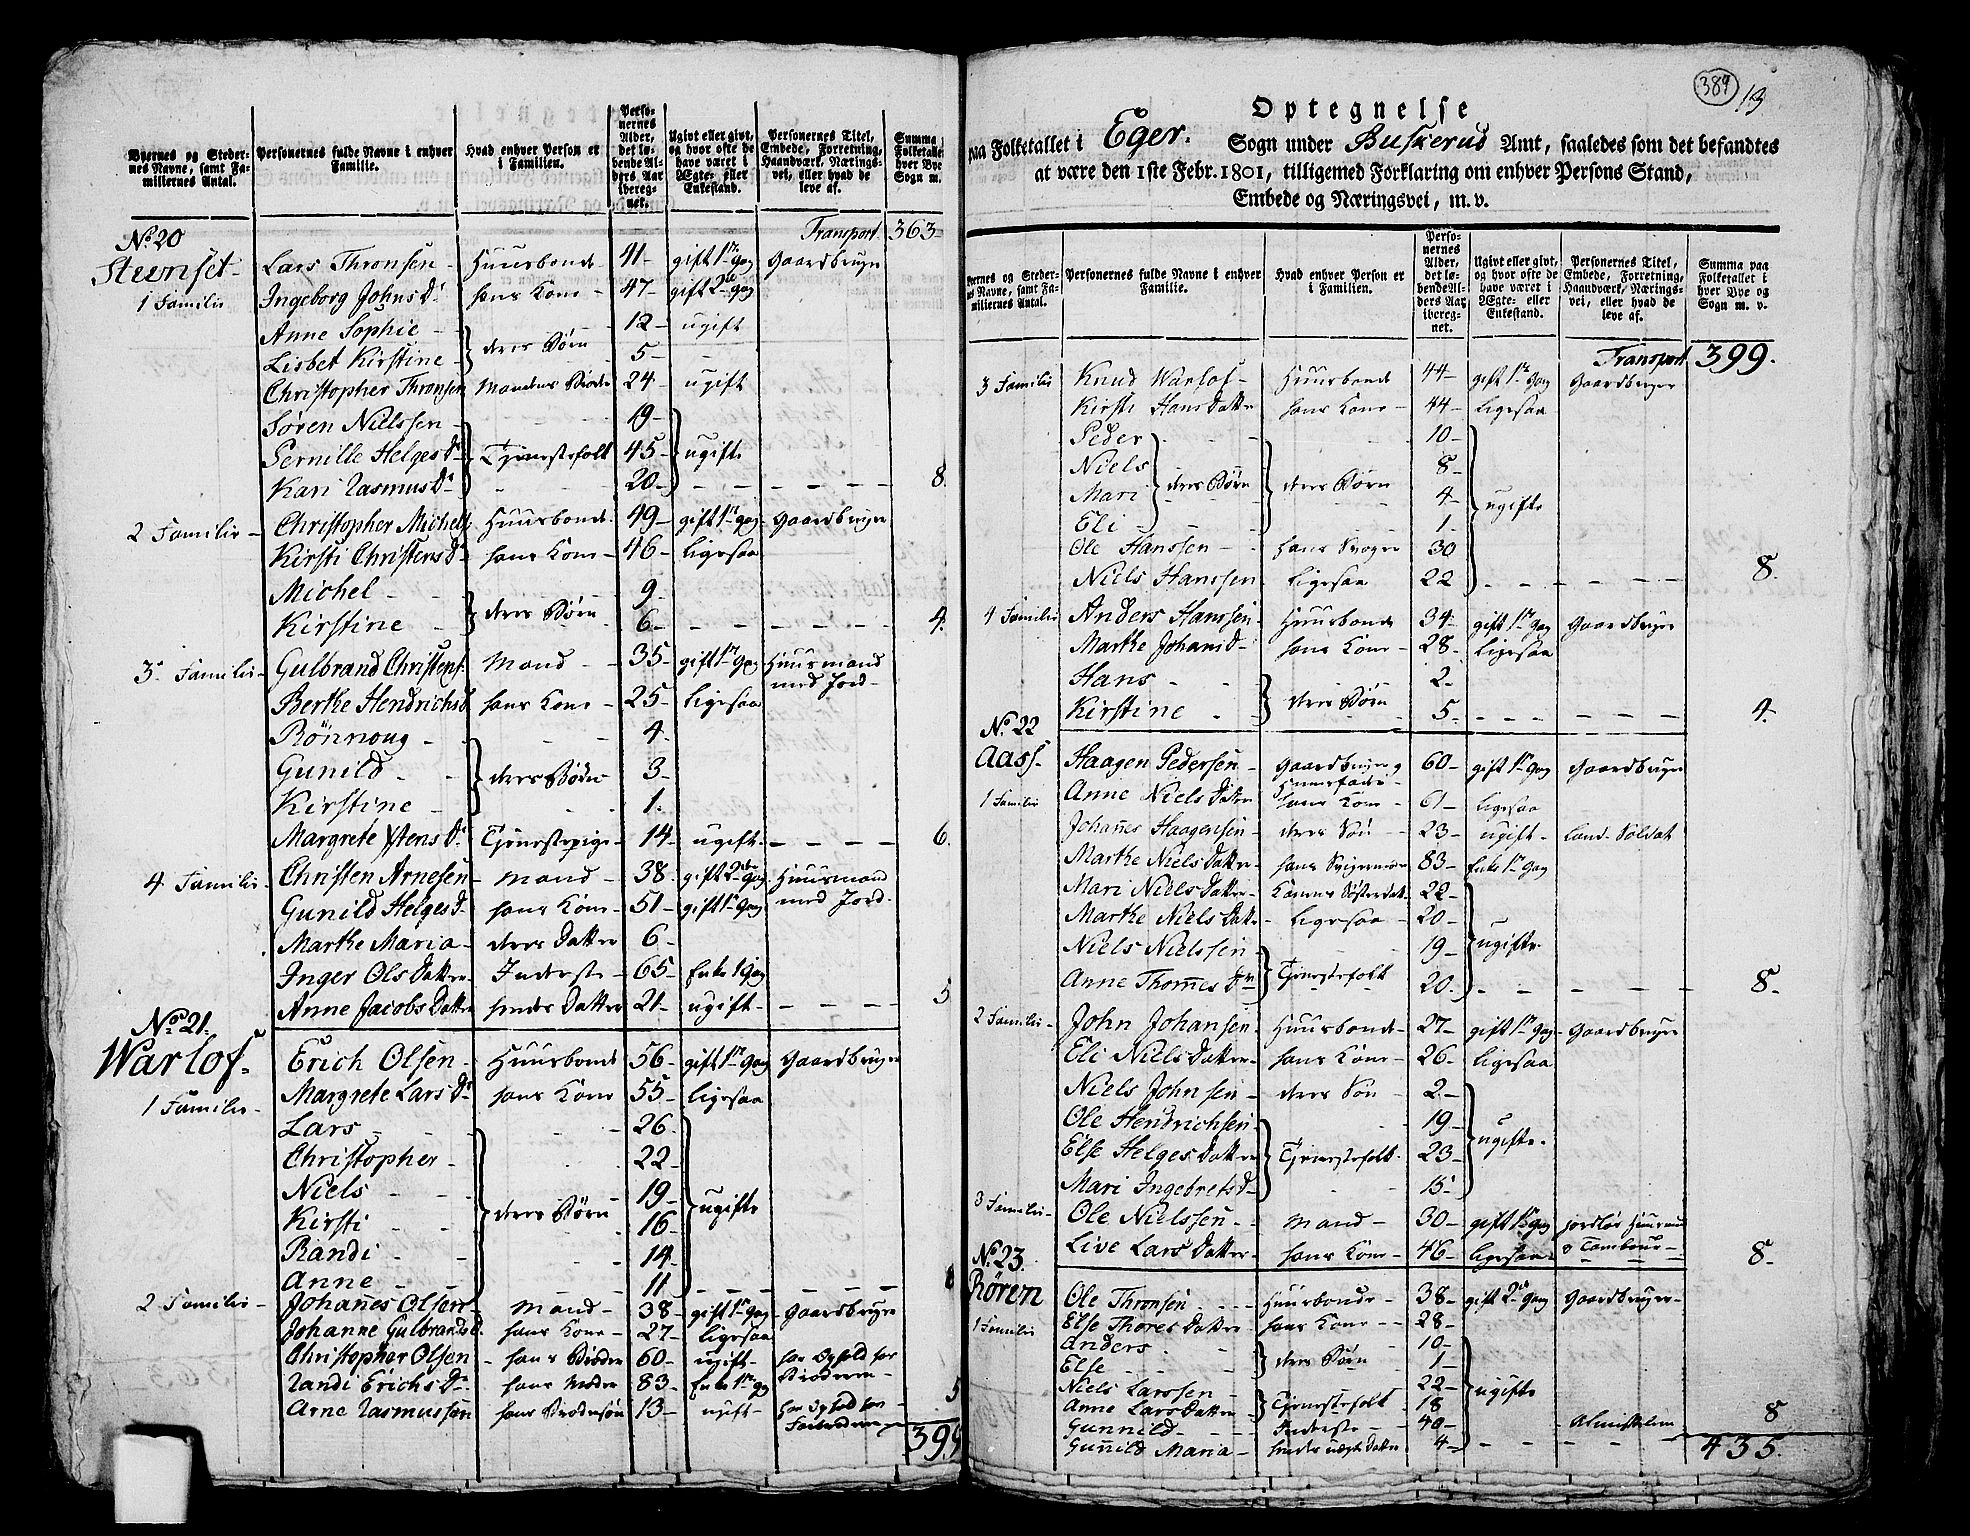 Byernes og Steder-
nes Navne, samt Fa-
miliernes Antal.
Personernes fulde Navne i enhver
Familie.
Hvad enhver Person er
i Familien.
Perso-
nernes
Alder,
det lø-
bende Al-
ders Aar
ibereg-
net.
Ugivt eller givt,
og hvor ofte de
have været i
Ægte- eller
Enkestand.
Personernes Titel,
Embede, Forretning,
Haandværk, Nærings-
vei, eller hvad de
leve af.
Summa
Folketalle
hver Bye
Sogn m.
Transport 363
No 20
Steenset
1 Familie
Lars Thronsen Huusbonde 41 gift 1te Gang Gaardbruger
Ingeborg Johns Dr hans Kone 47 gift 2de Gang
Anne Sophie 12 ugift
Lisbet Kirstine deres Børn 5
Christopher Thronsen Mandens Broder 24 ugift
Søren Nielssen 19
Pernille Helges Dr Tjenestefolk 45 ugifte
Kari Rasmus Dr 20 8
2 Familie Christopher Michels Huusbonde 49 gift 1te Gang Gaardbruger
Kirsti Christens Dr hans Kone 46 ligesaa
Michel 9
Kirstine deres Børn 6 4
3 Familie Gulbrand Christens Mand 35 gift 1te Gang Huusmand
med Jord
Berthe Hendrichsd hans Kone 25 ligesaa
Rönnoug 4
Gunild deres Børn 3
Kirstine 1
Margrete Ystens Dr Tjenestepige 14 ugift 6
4 Familie Christen Arnesen Mand 38 gift 2de Gang Huusmand
med Jord
Gunild Helges D hans Kone 51 gift 1te Gang
Marthe Maria deres Datter 6
Inger Ols Datter Inderste 65 Enke 1 Gang
Anne Jacobs Datter hendes Datter 21 ugift 5
No 21
Warlos
1 Familie
Erich Olsen Huusbonde 56 gift 1te Gang Gaardbruger
Margrete Lars Dr hans Kone 55 ligesaa
Lars 26
Christopher 22
Niels 19
Kirsti deres Børn 16 ugifte
Randi 14
Anne 11 8
2 Familie Johannes Olsen Mand 38 gift 1te Gang Gaardbruger
Johanne Gulbrands D hans Kone 27 ligesaa
Christopher Olsen hans Broder 60 ugift har Ophold hos
Broderen
Randi Erichs Dr hans Moder 83 Enke 1te Gang
Arne Rasmussen hans Brodersøn 13 ugift har Ophold hos 5
399
389
13
Optegnelse
paa Folketallet i Eger. Sogn under Buskerud Amt, saaledes som det befandtes
at være den 1ste Febr. 1801, tilligemed Forklaring om enhver Persons Stand,
Embede og Næringsvei, m. v.
Byernes og Steder-
nes Navne, samt Fa-
miliernes Antal.
Personernes fulde Navne i enhver
Familie.
Hvad enhver Person er
i Familien.
Perso-
nernes
Alder,
det lø-
bende Al-
ders Aar
ibereg-
net.
Ugivt eller givt,
og hvor ofte de
have været i
Ægte- eller
Enkestand.
Personernes Titel,
Embede, Forretning,
Haandværk, Nærings-
vei, eller hvad de
leve af.
Summa paa
Folketallet i
hver Bye og
Sogn m. v.
Transport 399.
3 Familie Knud Warlos Huusbonde 44 gift 1te Gang Gaardbruger
Kirsti Hans Datter hans Kone 44 ligesaa
Peder 10
Niels deres Børn deres Børn 8
Mari 4 ugifte
Eli 1
Ole Hanssen hans Svoger 30
Niels Hanssen ligesaa 22 8.
4 Familie Anders Hanssen Huusbonde 34 gift 1te Gang Gaardbruger
Marthe Johans D hans Kone 28 ligesaa
Hans 2
Kirstine deres Børn 5 4
No 22
Aass
1 Familie
Haagen Pedersen Gaardbruger og
Huusfader 60 gift 1te Gang Gaardbruger
Anne Niels Datter hans Kone 61 ligesaa
Johannes Haagensen deres Søn 23 ugift Land-Soldat
Marthe Niels Datter hans Svigermoder 83 Enke 1te Gang
Mari Niels Datter Konens Søsterdatter 22
Marthe Niels Datter ligesaa 20
Niels Nielssen 19 ugifte
Anne Thommes Dr Tjenestefolk 20 8
2 Familie John Johansen Huusbonde 27 gift 1te Gang Gaardbruger
Eli Niels Datter hans Kone 26 ligesaa
Niels Johnsen deres Søn 2
Ole Hendrichsen 19
Else Helges Datter Tjenestefolk 23 ugifte
Mari Ingebrets D 15
3 Familie Ole Nielssen Mand 30 gift 1te Gang jordløs Huusmand
Live Lars Datter hans Kone 46 ligesaa o Tambour 8
No 23.
Røren
1 Familie
Ole Thronsen Huusbonde 38 gift 2de Gang Gaardbruger
Else Thores Datter hans Kone 28
Anders 10
Else deres Børn 1
Niels Larssen 22 ugifte
Anne Lars Datter Tjenestefolk 18
Gunnild Inderste 40 Almisselem 8
Gunnild Maria hendes uægte Datter 4
435.